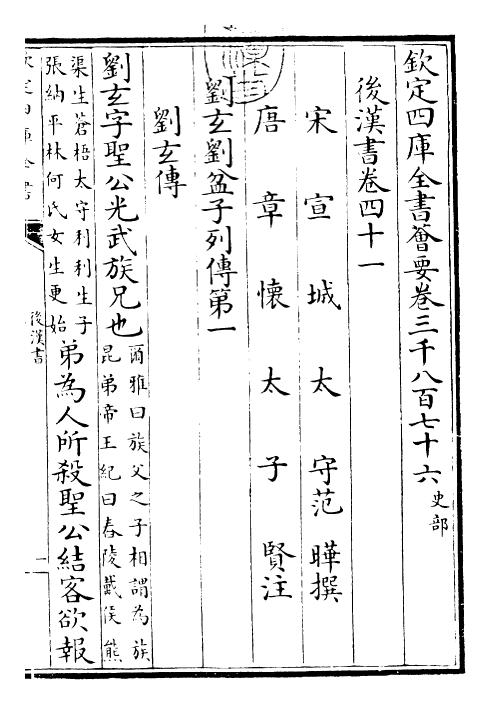 欽定四庫全書薈要卷三千八百七十六 史部
後漢書卷四十一
宋宣城太守范曄撰
唐章懷太子賢注
劉玄劉盆子列傳第一
劉玄傳
劉玄字聖公光武族兄也
爾雅曰族父之子相謂為族
昆弟帝王紀曰舂陵戴侯熊
渠生蒼梧太守利利生子
張納平林何氏女生更始
弟為人所殺聖公結客欲報
後漢書
一